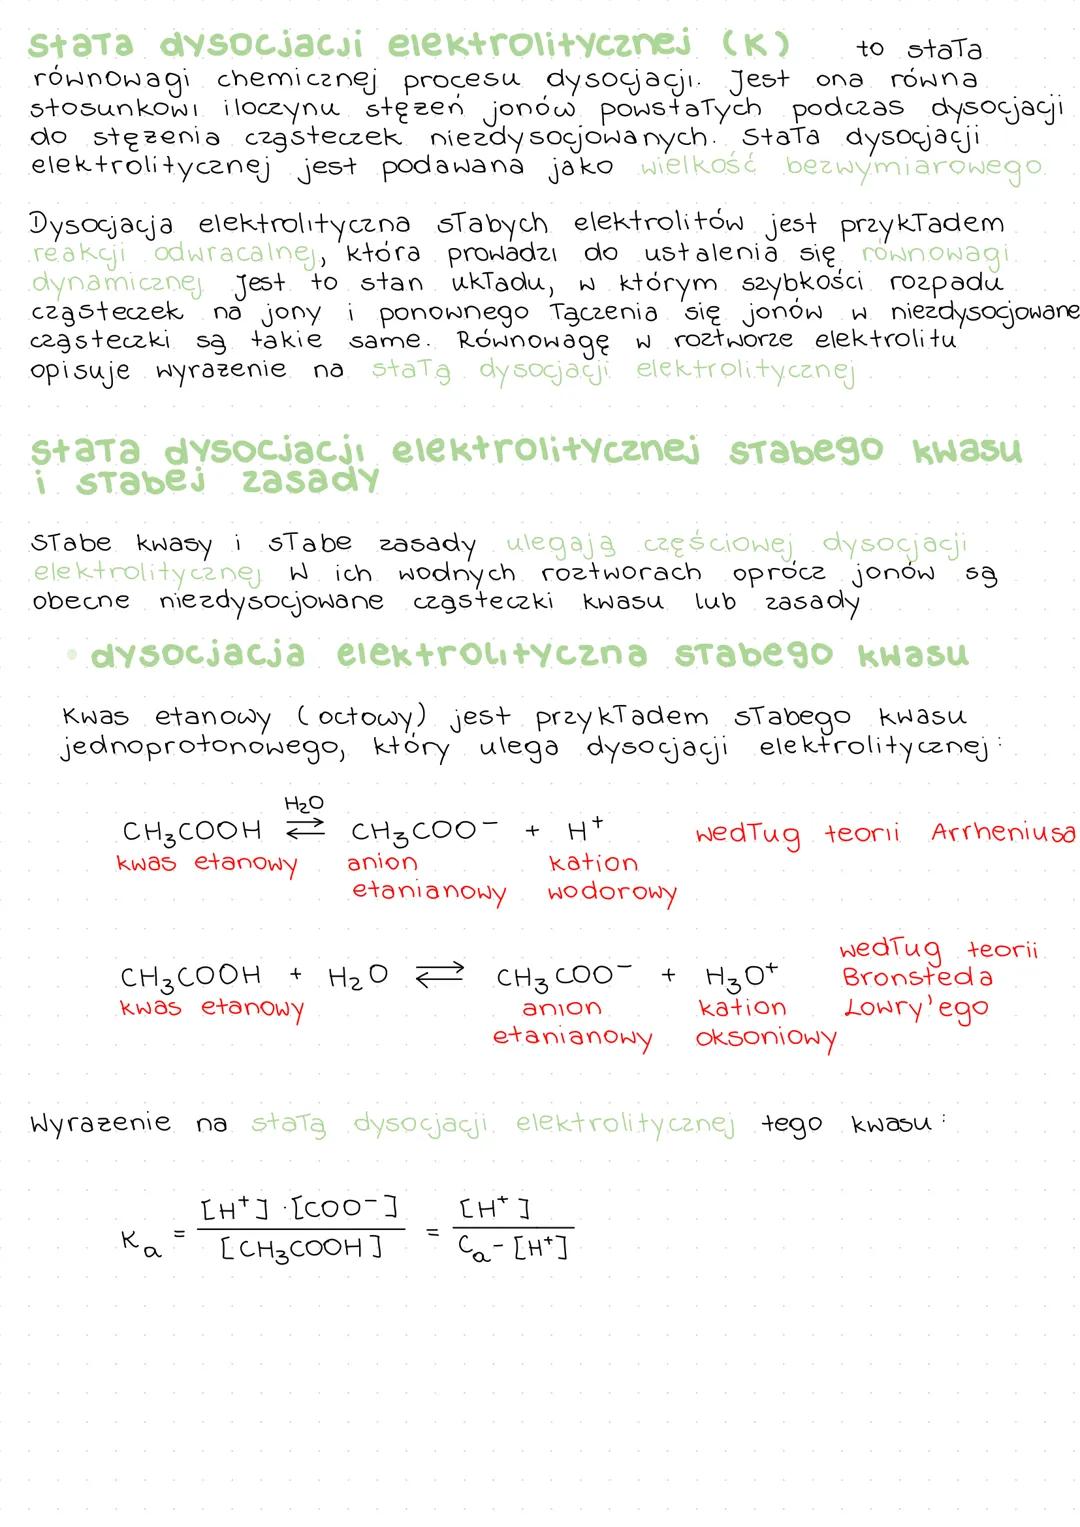 Stała dysocjacji elektrolitycznej (K) to stała
równowagi chemicznej procesu dysocjacji. Jest ona równa
stosunkowi iloczynu stężeń jonów powstałych podczas dysocjacji
do stężenia cząsteczek niezdysocjowanych. Stała dysocjacji
elektrolitycznej jest podawana jako wielkość bezwymiarowego.
Dysocjacja elektrolityczna słabych elektrolitów jest przykładem
reakcji odwracalnej, która prowadzi do ustalenia się równowagi
dynamicznej Jest to stan układu, w którym szybkości rozpadu
cząsteczek na jony i ponownego łączenia się jonów w niezdysocjowane
cząsteczki są takie same. Równowagę w roztworze elektrolitu
opisuje wyrażenie na stałą dysocjacji elektrolitycznej
Stała dysocjacji elektrolitycznej słabego kwasu
i słabej zasady
Słabe kwasy i słabe zasady ulegają częściowej dysocjacji
elektrolitycznej W ich wodnych roztworach oprócz jonów są
obecne niezdysocjowane cząsteczki kwasu lub zasady
• dysocjacja elektrolityczna słabego kwasu
Kwas etanowy (octowy) jest przykładem słabego kwasu
jednoprotonowego, który ulega dysocjacji elektrolitycznej:
H₂O
CH₃COOH ⇄ CH₃COO⁻ + H⁺ według teorii Arrheniusa
kwas etanowy anion kation
etanianowy wodorowy
według teorii
CH₃COOH + H₂O ⇄ CH₃COO⁻ + H₃O⁺ Bronsteda
kwas etanowy anion kation Lowry'ego
etanianowy oksoniowy
Wyrażenie na stałą dysocjacji elektrolitycznej tego kwasu:
[H⁺]·[COO⁻] [H⁺]
Kₐ = =
[CH₃COOH] Cₐ-[H⁺]